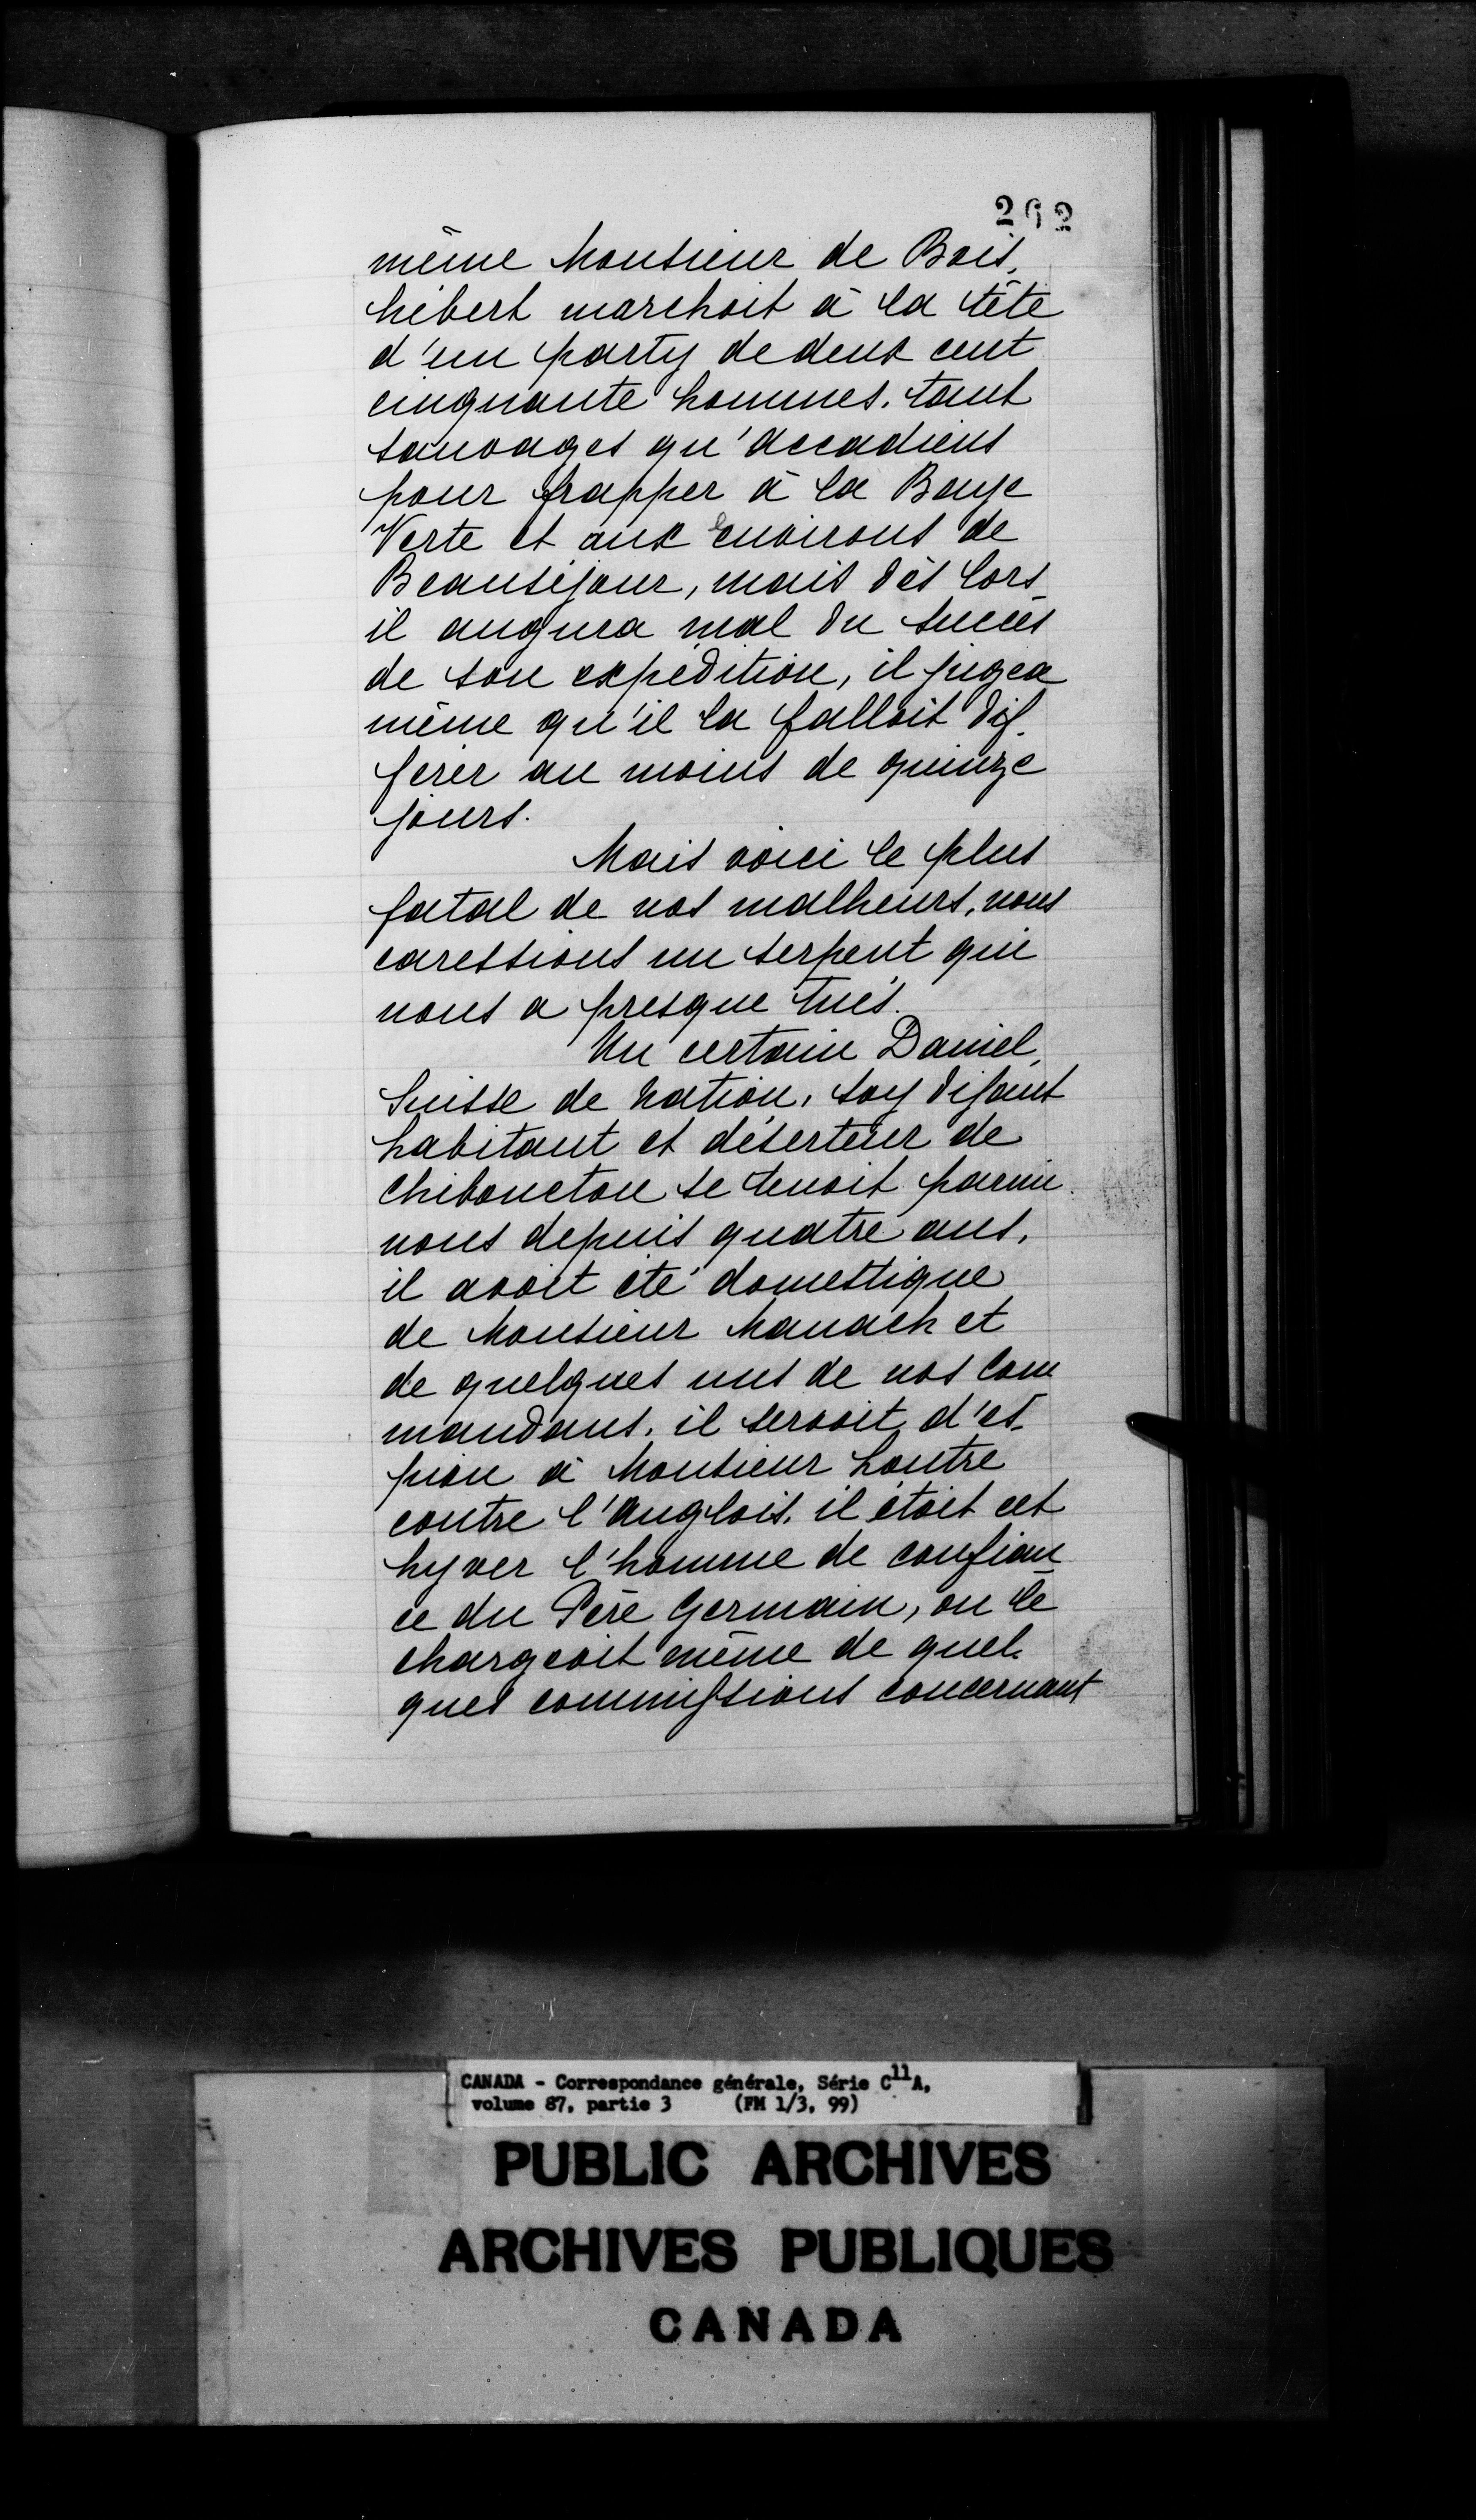 262
même Monsieur de Bois-
hébert marchoit à la tête
d'un party de deux cent
cinquante hommes. tant
sauvages qu'accadiens
pour frapper à la Baye
Verte et aux environs de
Beauséjour, mais dès lors
il augura mal du succès
de son expédition, il jugea
même qu'il la falloit dif-
férer au moins de quinze
jours.
Mais voici le plus
fatal de nos malheurs, nous
caressions un serpent qui
nous a presque tués.
Un certain Daniel,
Suisse de nation, soy disant
habitant et déserteur de
Chibouctou se tenoit parmi
nous depuis quatre ans,
il avoit été domestique
de Monsieur Manach et
de quelques uns de nos Com
mandans. il servoit d'es-
pion à Monsieur Loutre
contre l'anglois. il étoit cet
hyver l'homme de confian
ce du Père Germain, on le
chargeoit même de quel-
ques commissions concernant
CANADA - Correspondance générale, Série C11A,
volume 87, partie 3 (FM 1/3, 99)
PUBLIC ARCHIVES
ARCHIVES PUBLIQUES
CANADA